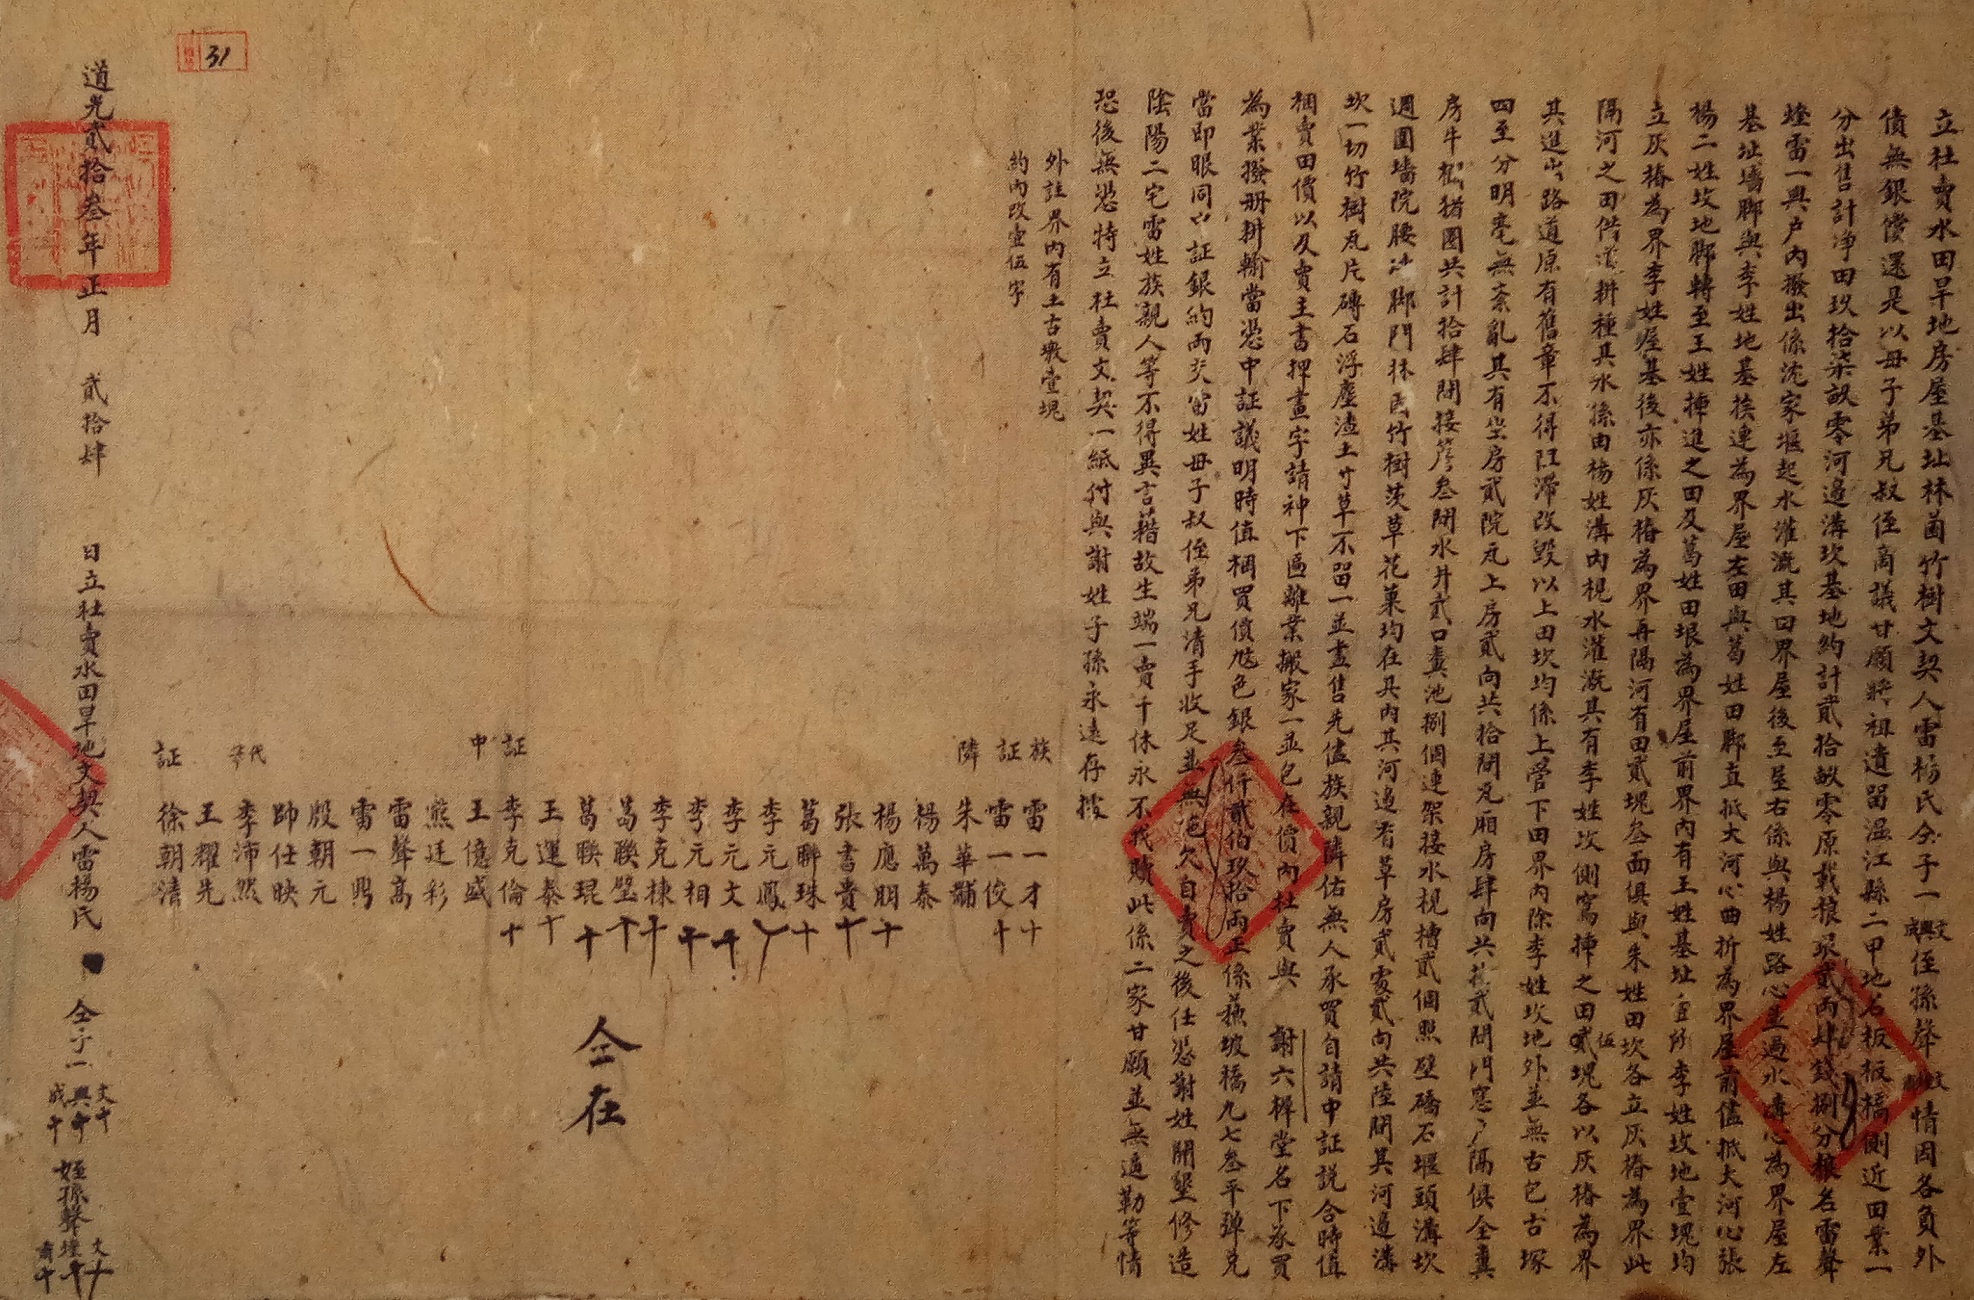 立杜賣水田旱地房屋基址林園竹樹文契人雷楊氏仝子一文興成侄孫聲 情因各負外
債無銀償還是以母子弟兄叔侄商議甘願將祖遺畱溫江縣二甲地名板板橋側近田業一
分出售計净田玖拾柒畝零河邉溝坎基地約計貳拾畝零原載粮銀貳兩肆錢捌分粮名雷聲
堦雷一興户內撥出係沈家堰起水灌溉其田界屋後至屋右係與楊姓路心並過水溝心為界屋左
基址墻脚與李姓地基挨連為界屋左田與葛姓田脚直抵大河心曲折為界屋前儘抵大河心張
楊二姓坟地脚轉至王姓揷進之田及葛姓田埂為界屋前界內有王姓基址 李姓坟地壹塊均
立灰樁為界李姓屋基後亦係灰樁為界再隔河有田貳塊叁面俱與朱姓田坎各立灰樁為界此
隔河之田供 耕種其水係由楊姓溝內梘水灌溉其有李姓坟側窩揷之田伍塊各以灰樁為界
其進出路道原有舊章不得阻滯改毀以上田坎均係上管下田界內除李姓坟地外並無古包古塚
四至分明毫無紊亂其有坐房貳院瓦上房貳向共拾間瓦厢房肆向共拾貳間門窓户隔俱全糞
房牛欄猪圈共計拾肆間接簷叁間水井貳口糞池捌個連架接水梘槽貳個照壁礄石堰頭溝坎
週圍墻院腰 脚門林園竹樹茨草花菓均在其內其河邉有草房貳處貳向共陸間其河邉溝
坎一切竹樹瓦片磚石浮塵渣土寸草不畱一並盡售先儘族親隣佑無人承買自請中証説合時值
梱賣田價以及賣主書押畫字請神下匾離業搬家一並包在價內杜賣與 謝六樨堂名下承買
為業撥册耕輸當憑中証議明時值梱買價九色銀叁仟貳伯玖拾兩正係蘓坡橋九七叁平彈兑
當即眼同中証銀約兩交雷姓母子叔侄弟兄清手收足並無拖欠自賣之後任憑謝姓開墾修造
陰陽二宅雷姓族親人等不得異言藉故生端一賣千休永不代贖此係二家甘願並無逼勒等情
恐後無憑特立杜賣文契一紙付與謝姓子孫永遠存據
外註界內有土古墩壹塊
約內改壹伍字
族 雷一才十
証 雷一俊十
隣 朱華黼
楊萬泰
楊應朋十
張書貴十
葛聯珠十
李元鳳
李元文
李元相
李克棟
葛聯璧
葛聯琨十
王運泰十
証 李克倫十
中 王億盛
熊廷彩
雷聲高
雷一興
殷朝元
帥仕映
代字 李沛然
王耀先
証 徐朝清
仝在
道光貳拾叁年正月 貳拾肆 日立杜賣水田旱地文契人雷楊氏 仝子一文興成 姪孫聲
31